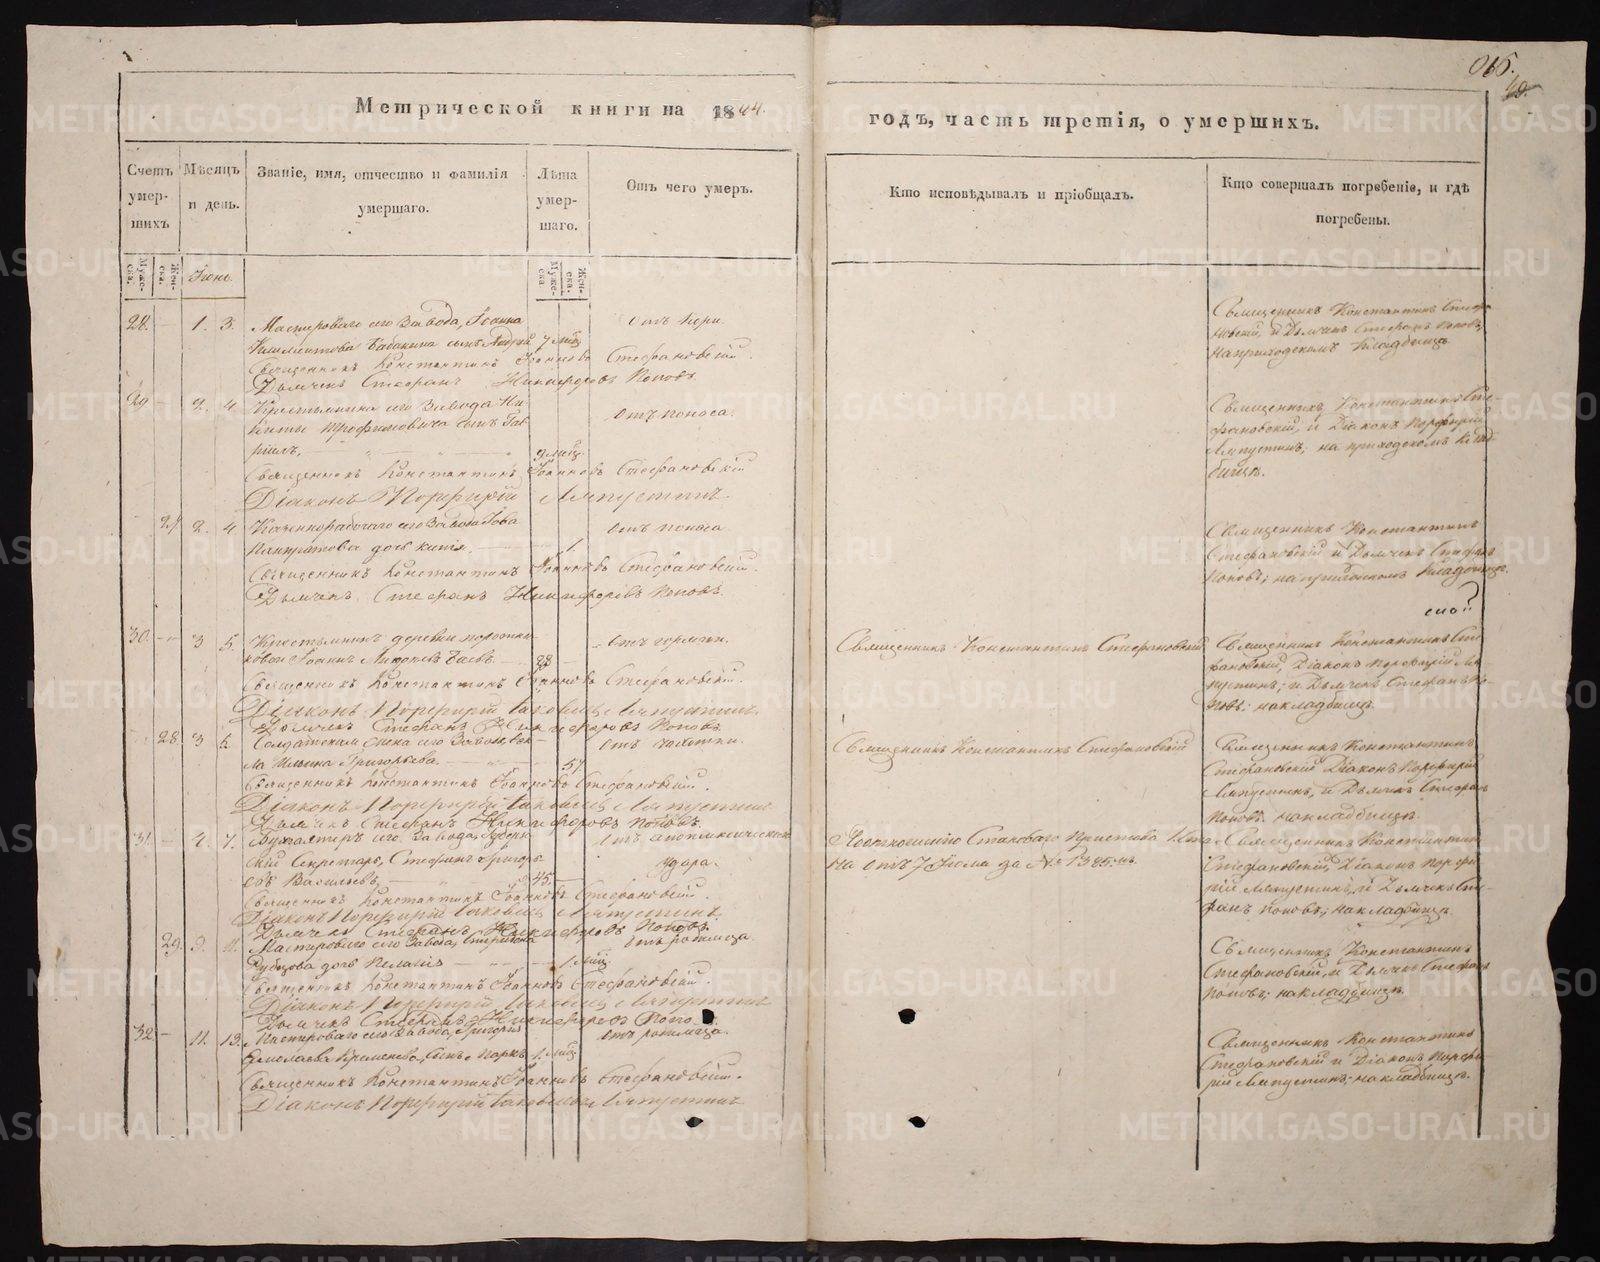 Метрической книги на 1844.
годъ, часть третія, о умершихъ.
Счетъ умер-шихъ
Мѣсяцъ и день.
Званіе, имя, отчество и фамилія умершаго.
Лѣта умер-шаго.
Отъ чего умеръ.
Кто исповѣдывалъ и пріобщалъ.
Кто совершалъ погребеніе, и гдѣ погребены.
Муже-ска.
Жен-ска.
Іюнь.
Муже-ска
Жен-ска.
28. 1. 3. Мастероваго сего Завода, Іоанна
отъ кори.
Бабакина сынъ
Священникъ Константинъ Іоанновъ Стефановскій.
Дьячекъ Стефанъ Никифоровъ Поповъ.
Священникъ Константинъ
и Дьячекъ Стефанъ Поповъ,
на приходскомъ кладбищѣ
29 2. 4 Крестьянина сего Завода Ни-
киты Трофимовича сынъ Гав-
ріилъ,
9 мѣс.
отъ поноса.
Священникъ Константинъ Іоанновъ Стефановскій
Діаконъ Порфирій Ляпустинъ.
Священникъ Константинъ Сте-
фановскій, и Діаконъ Порфирій
Ляпустинъ, на приходскомъ клад-
бищѣ.
27 2. 4. сего Завода
Панкратова дочь
1
отъ поноса
Священникъ Константинъ Іоанновъ Стефановскій.
Дьячекъ Стефанъ Никифоровъ Поповъ.
Священникъ Константинъ
Стефановскій и Дьячекъ Стефанъ
Поповъ; на приходскомъ кладбищѣ.
30. 3 5. Крестьянинъ деревни
Іоаннъ
28
отъ горячки.
Священникъ Константинъ Іоанновъ Стефановскій.
Діаконъ Порфирій Іаковлевъ Ляпустинъ.
Дьячекъ Стефанъ Никифоровъ Поповъ.
Священникъ Константинъ Стефановскій
Священникъ Константинъ Сте-
фановскій, Діаконъ Порфирій Ля-
пустинъ, и Дьячекъ Стефанъ По-
повъ; на кладбищѣ.
28. 3 6. Солдатская жена сего Завода,
Ильина Григорьева.
57
отъ чахотки.
Священникъ Константинъ Іоанновъ Стефановскій.
Діаконъ Порфирій Іаковлевъ Ляпустинъ
Дьячекъ Стефанъ Никифоровъ Поповъ.
Священникъ Константинъ Стефановскій
Священникъ Константинъ
Стефановскій Діаконъ Порфирій
Ляпустинъ, и Дьячекъ Стефанъ
Поповъ. на кладбищѣ.
31. 4. 7. Бухгалтеръ сего Завода, Губерн-
скій Секретарь, Стефанъ Григорь-
евъ Васильевъ,
45
отъ апоплексическаго
удара.
Священникъ Константинъ Іоанновъ Стефановскій.
Діаконъ Порфирій Іаковлевъ Ляпустинъ.
Дьячекъ Стефанъ Никифоровъ Поповъ.
По отношенію Становаго Пристава
на отъ 7 Іюня за № 1385.мъ.
Священникъ Константинъ
Стефановскій, Діаконъ Порфи-
рій Ляпустинъ, и Дьячекъ Сте-
фанъ Поповъ; на кладбищѣ.
29. 9. 11. Мастероваго сего Завода,
Рубцова дочь Пелагія
1 мѣс.
отъ родимца.
Священникъ Константинъ Іоанновъ Стефановскій.
Діаконъ Порфирій Іаковлевъ Ляпустинъ
Дьячекъ Стефанъ Никифоровъ
Священникъ Константинъ
Стефановскій, и Дьячекъ Стефанъ
Поповъ; на кладбищѣ.
32. 11. 13. Мастероваго сего Завода, Григорія
сынъ
1 мѣс
отъ родимца.
Священникъ Константинъ Іоанновъ Стефановскій.
Діаконъ Порфирій Іаковлевъ Ляпустинъ
Священникъ Константинъ
Стефановскій и Діаконъ Порфи-
рій Ляпустинъ; на кладбищѣ.
METRIKI.GASO-URAL.RU